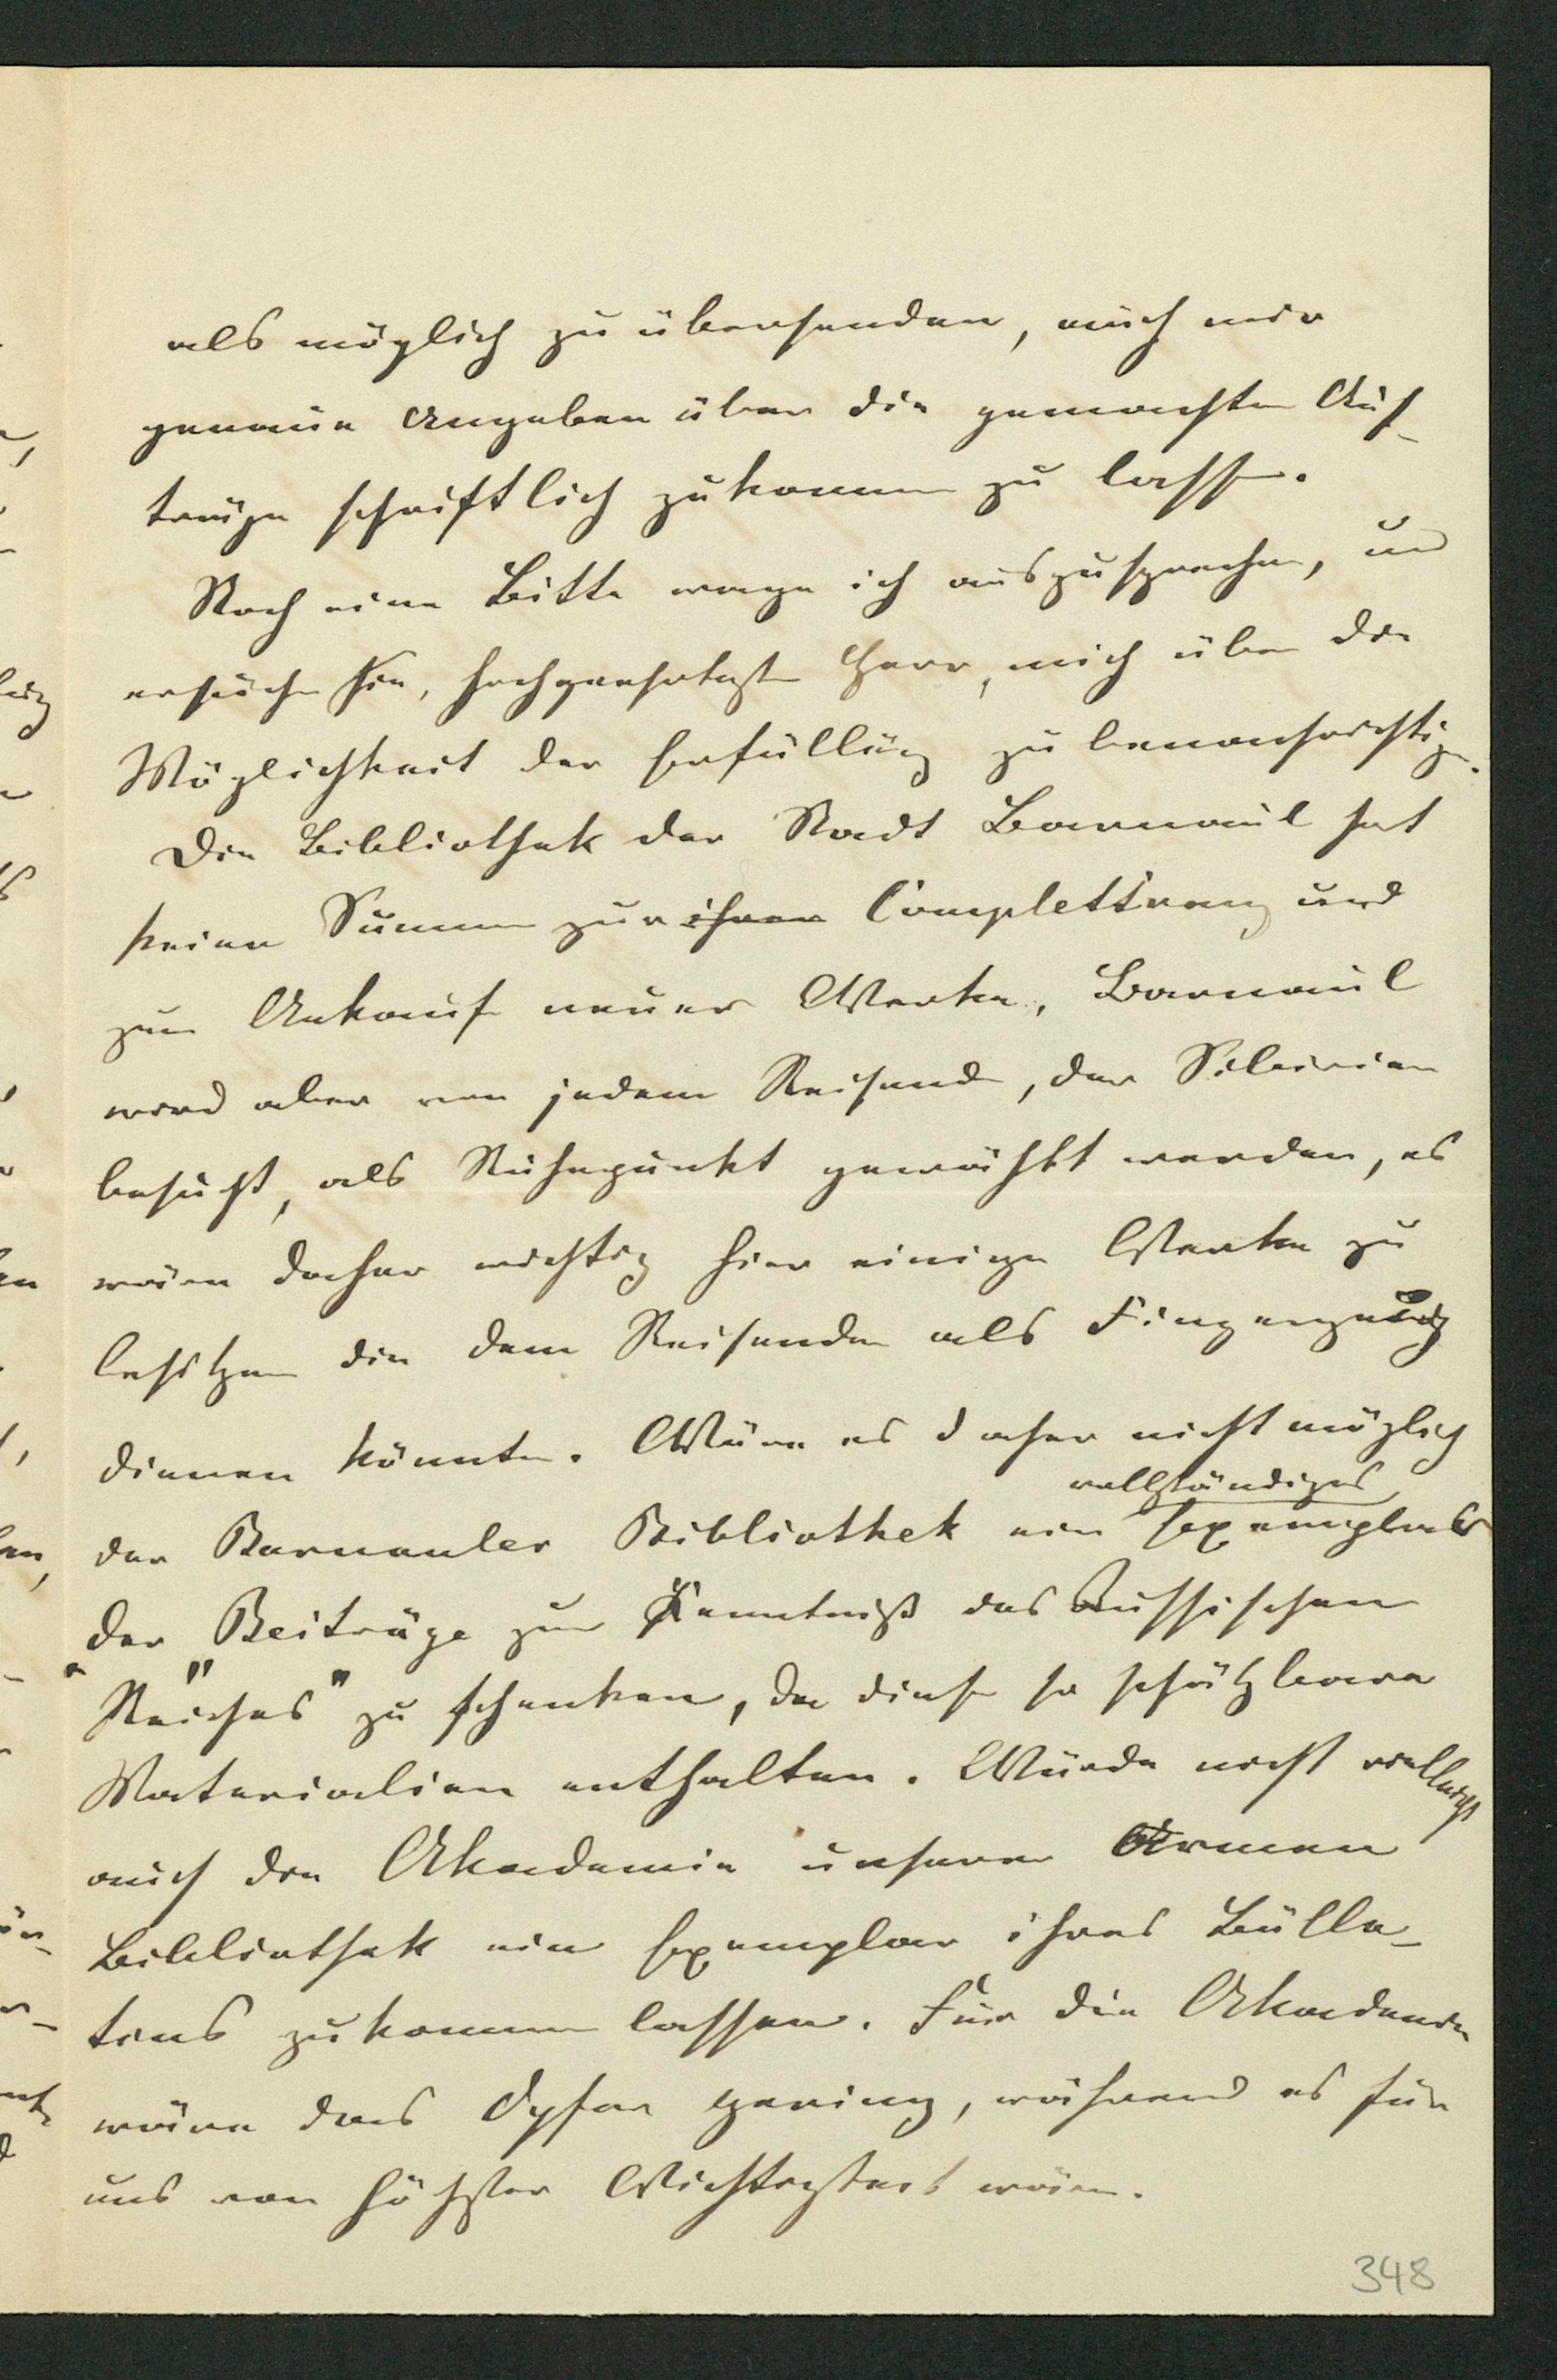 als möglich zu übersenden, auch mir
genaue Angaben über die gemachten Auf-
träge schriftlich zukommen zu lassen.
Noch eine Bitte wage ich auszusprechen, und
ersuche Sie, hochgeehrtester Herr, mich über die
Möglichkeit der Erfüllung zu benachrichtigen.
Die Bibliothek der Stadt Barnaul hat
keine Summen zur ihrer Complettirung und
zum Ankauf neuer Werke, Barnaul
wird aber von jedem Reisenden, der Sibirien
besucht, als Ruhepunkt gewählt werden, es
wäre daher wichtig hier einige Werke zu
besitzen die dem Reisenden als Fingerzeig
dienen könnten. Wäre es daher nicht möglich
vollständiges
der Barnauler Bibliothek ein Exemplar
der "Beiträge zur Kenntniß des Russischen
"Reiches" zu schenken, da diese so schätzbare
Materialien enthalten. Würde nicht vielleicht
auch die Akademie unserer Armen
Bibliothek ein Exemplar ihres Bülle-
tins zukommen lassen. Für die Akademie
wäre das Opfer gering, während es für
uns von höchster Wichtigkeit wäre.
348